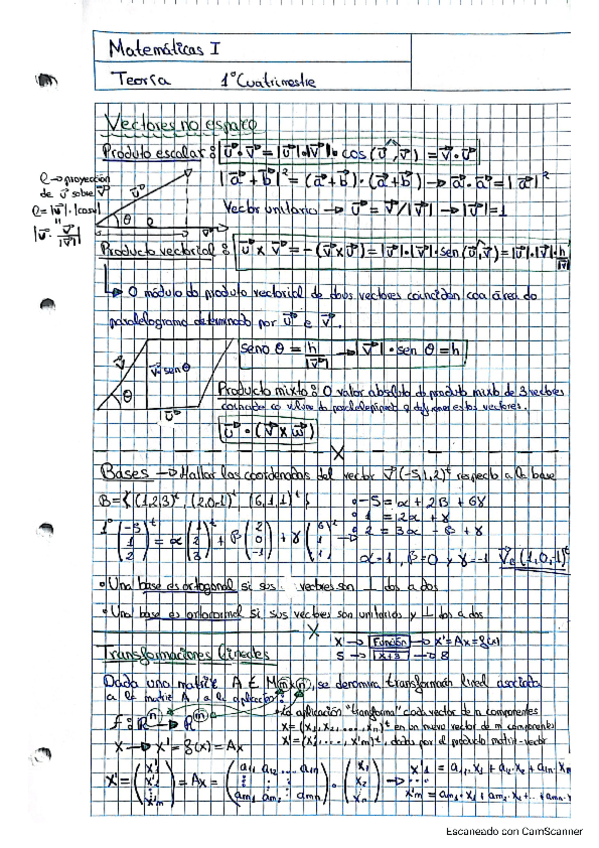 Matemáticas I
Teoría 1º Cuatrimestre
Vectores no espacio
Produto escalar: u⃗ · v⃗ = |u⃗|·|v⃗|· cos(u⃗, v⃗) = v⃗ · u⃗
l → proyección
de u⃗ sobre v⃗
|a⃗ + b⃗|² = (a⃗ + b⃗) · (a⃗ + b⃗) → a⃗ · a⃗ = |a⃗|²
Vector unitario → u⃗ = v⃗/|v⃗| → |u⃗| = 1
θ l
Producto vectorial: u⃗ x v⃗ = -(v⃗ x u⃗) = |u⃗|·|v⃗|· sen(u⃗, v⃗) = |u⃗|·|v⃗|· h/|v⃗|
→ O módulo do produto vectorial de dous vectores coinciden coa área do
paralelogramo determinado por u⃗ e v⃗.
seno θ = h/|v⃗| → |v⃗| · sen θ = h
v⃗ v⃗ sen θ
θ u⃗
Producto mixto: O valor absoluto do produto mixto de 3 vectores
estos vectores.
u⃗ · (v⃗ x w⃗)
X
Bases → Hallar las coordenadas del vector v⃗ (-5,1,2)ᵗ respecto a la base
B = {(1,2,3)ᵗ, (2,0,-1)ᵗ, (6,1,1)ᵗ}
-5 = α + 2β + 6γ
1 = 2α + γ
2 = 3α - β + γ
1º (-5 1 2)ᵗ = α (1 2 3)ᵗ + β (2 0 -1) + γ (6 1 1)ᵗ →
α=1, β=0 y γ=-1 V⃗B (1,0,-1)ᵗ
Una base es ortogonal si sus vectores son ⊥ dos a dos
Una base es ortonormal si sus vectores son unitarios y ⊥ dos a dos
X
X → Función → X' = Ax = f(x)
5 → X+3 → 8
Transformaciones lineales
Dada una matriz A ∈ M(m x n), se denomina transformación lineal asociada
a la matriz A, a la aplicación:
f: Rⁿ → Rᵐ
La aplicación "transforma" cada vector de n componentes
X = (x1, x2, ..., xn)ᵗ en un nuevo vector de m componentes
X' = (x'1, ..., x'm)ᵗ, dado por el producto matriz-vector
X → X' = f(x) = Ax
X' = (x'1 x'2 ⋮ x'm) = Ax = (a11 a12 ... a1n ⋮ am1 am2 ... amn) · (x1 x2 ⋮ xn) → x'1 = a11·x1 + a12·x2 + a1n·xn
x'm = am1·x1 + am2·x2 + ... + amn·
Escaneado con CamScanner